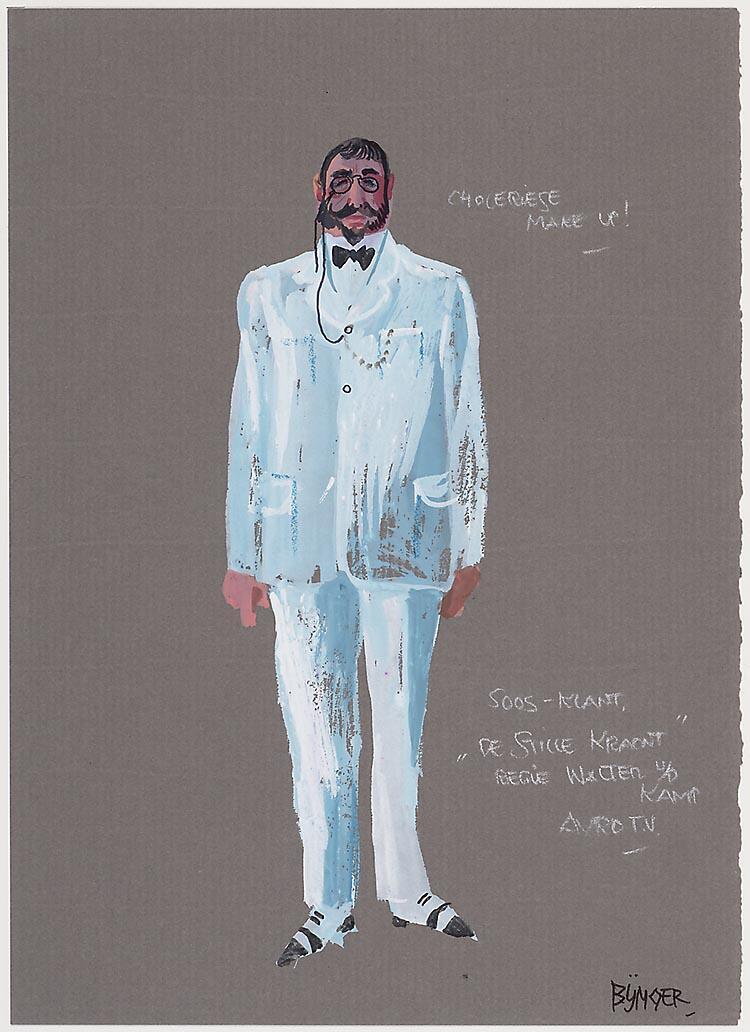 CHOLERIEKE
MAKE UP!
SOOS-KLANT,
"DE STILLE KRACHT"
REGIE WALTER v/d
KAMP
AVRO T.V.
BIJMOER